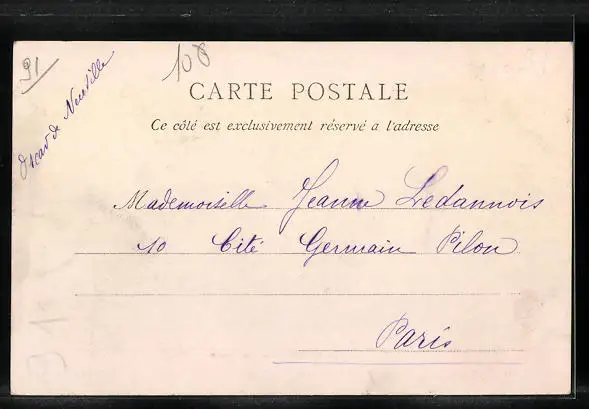 91
108
Oscar de Neuville
CARTE POSTALE
Ce côté est exclusivement réservé a l'adresse
Mademoiselle Jeanne Ledannois
10 Cité Germain Pilon
Paris